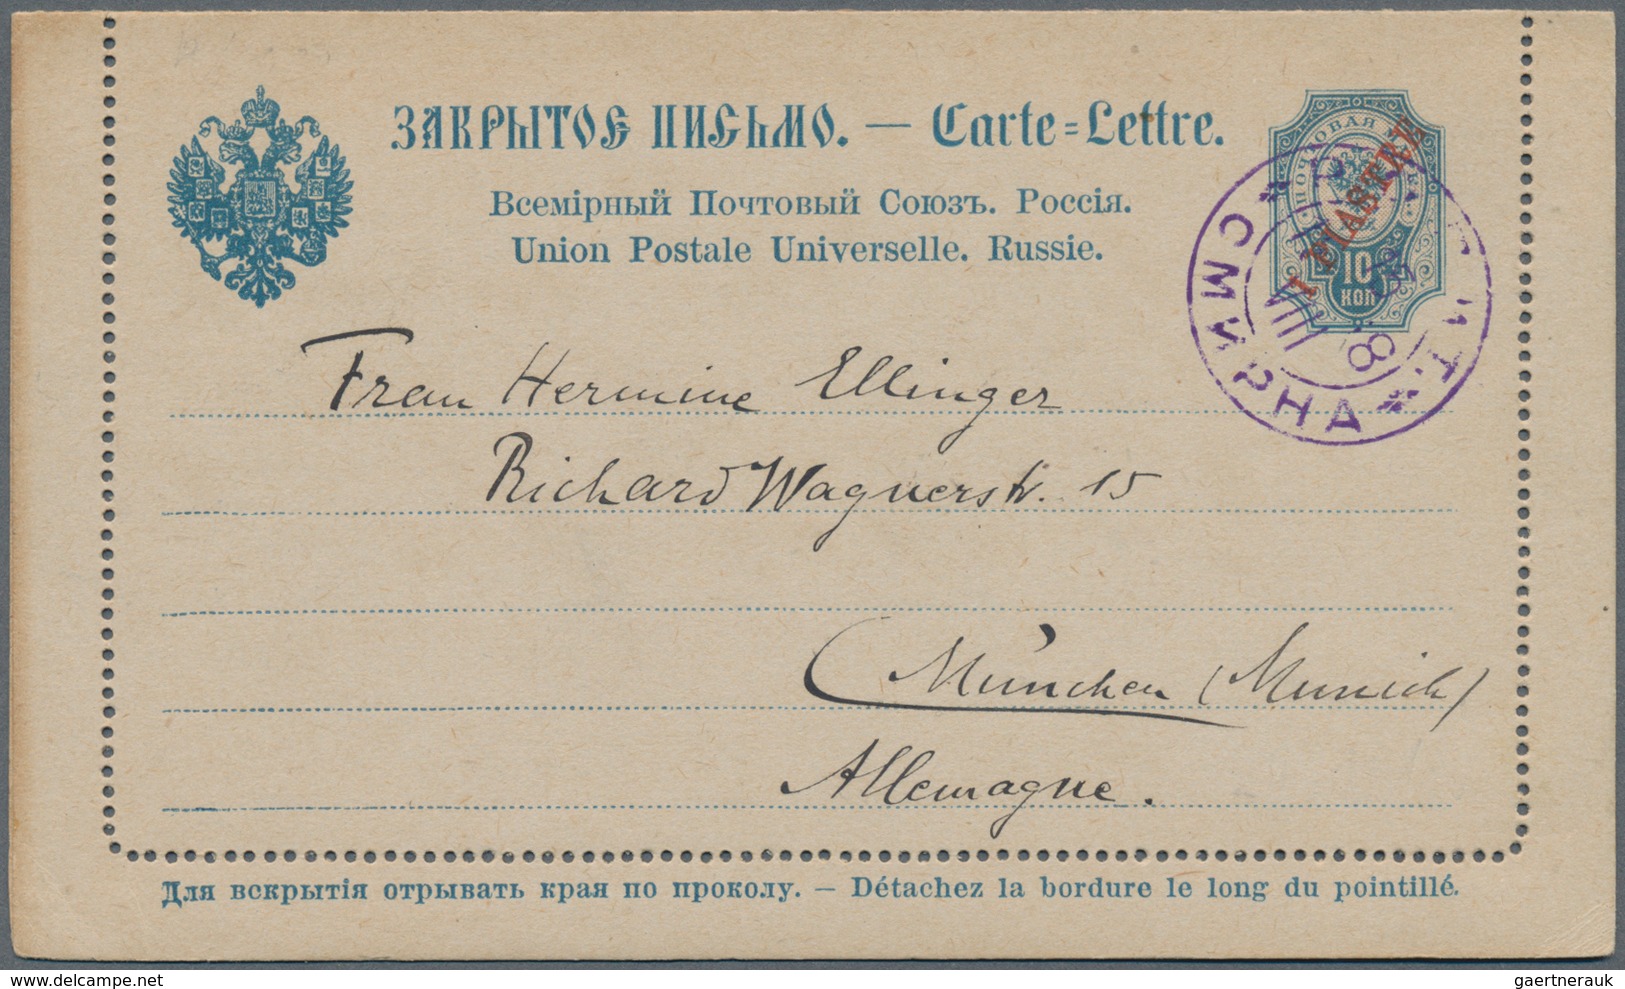 ЗАКРЫТОЕ ПИСЬМО. — Carte=Lettre.
Всемірный Почтовый Союзъ. Россія.
Union Postale Universelle. Russie.
ПОЧТОВАЯ
1 PIASTRE
10
КОП
СМИРНА
Frau Hermine Ellinger
Richard Wagnerstr. 15
München (Munich)
Allemagne.
Для вскрытія отрывать края по проколу. — Détachez la bordure le long du pointillé.
www.delcampe.net
gaertnerauk